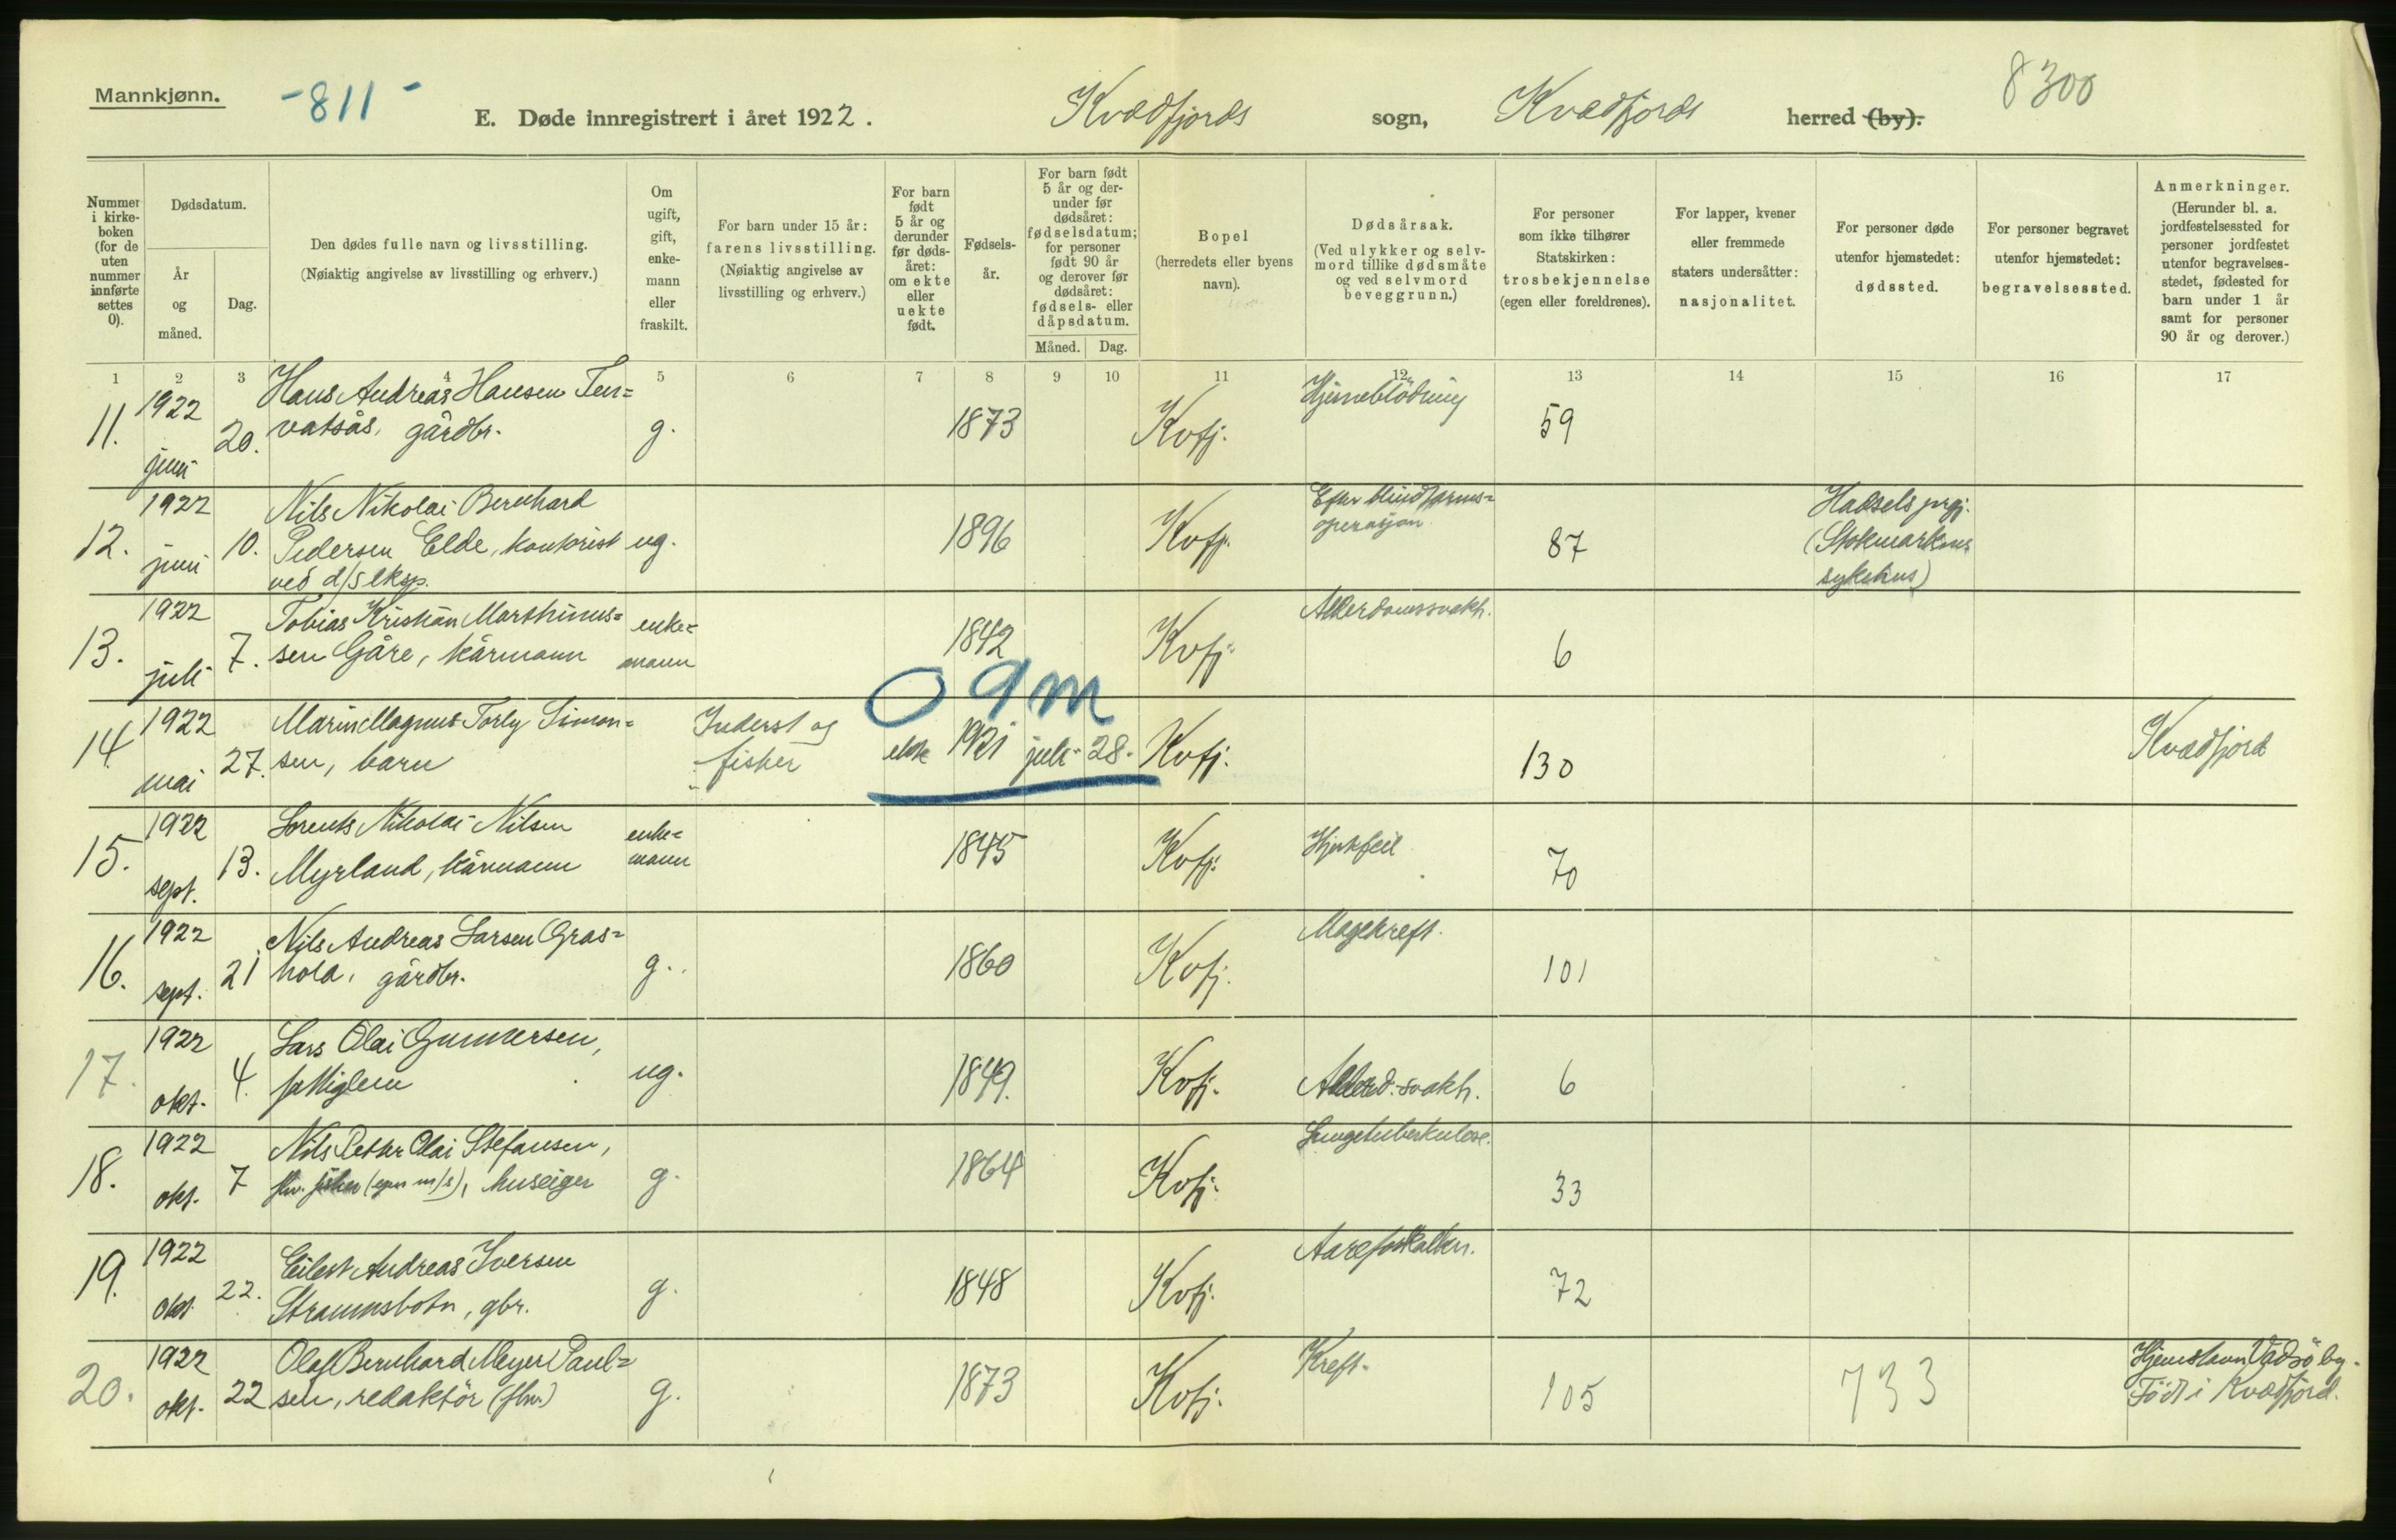 Mannkjønn.
-811-
E. Døde innregistrert i året 1922.
Kvædfjords sogn, Kvædfjords herred (by).
8300
Nummer i kirke-boken (for de uten nummer innførte settes 0).
Dødsdatum.
År og måned.
Dag.
Den dødes fulle navn og livsstilling.
(Nøiaktig angivelse av livsstilling og erhverv.)
Om ugift, gift, enke-mann eller fraskilt.
For barn under 15 år: farens livsstilling.
(Nøiaktig angivelse av livsstilling og erhverv.)
For barn født 5 år og derunder før døds-året: om ekte eller uekte født.
Fødsels-år.
For barn født 5 år og der-under før dødsåret: fødselsdatum; for personer født 90 år og derover før dødsåret: fødsels- eller dåpsdatum.
Måned. Dag.
Bopel
(herredets eller byens navn).
Dødsårsak.
(Ved ulykker og selv-mord tillike dødsmåte og ved selvmord beveggrunn.)
For personer som ikke tilhører Statskirken: trosbekjennelse (egen eller foreldrenes).
For lapper, kvener eller fremmede staters undersåtter: nasjonalitet.
For personer døde utenfor hjemstedet: dødssted.
For personer begravet utenfor hjemstedet: begravelsessted.
Anmerkninger.
(Herunder bl. a. jordfestelsessted for personer jordfestet utenfor begravelses-stedet, fødested for barn under 1 år samt for personer 90 år og derover.)
1 2 3 4 5 6 7 8 9 10 11 12 13 14 15 16 17
11. 1922 juni 20. Hans Andreas Hansen Ten=
vatsås, gårdbr. g. 1873 Kvfj. Hjerneblödning 59
12. 1922 juni 10. Nils Nikolai Bernhard
Pedersen Elde, kontorist ug. 1896 Kvfj. Efter blindtarms=
operasjon 87 Hadsels prgj.
(Stokmarknes
sykehus)
ved d/s eksp.
13. 1922 juli 7. Tobias Kristian Marthinus=
sen Gåre, kårmann enke=
mann 1842 Kvfj. Alderdomssvakh. 6
0 9m
14. 1922 mai 27. Marin Magnus Torly Simon=
sen, barn Inderst og
fisker ekte 1921 juli 28. Kvfj. 130 Kvædfjord
15. 1922 sept. 13. Lorents Nikolai Nilsen
Myrland, kårmann enke=
mann 1845 Kvfj. Hjertefeil 70
16. 1922 sept. 21 Nils Andreas Larsen Gras=
hola, gårdbr. g. 1860 Kvfj. Magekreft. 101
17. 1922 okt. 4. Lars Olai Gunnersen,
fattiglem ug. 1849. Kvfj. Alderd.svakh. 6
18. 1922 okt. 7 Nils Peter Olai Stefansen,
fhv. fisker (egen m/s), huseiger g. 1864 Kvfj. Lungetuberkulose. 33
19. 1922 okt 22. Eilert Andreas Iversen
Straumsbotn, gbr. g. 1848 Kvfj. Aareforkalkn. 72
20. 1922 okt. 22 Olaf Bernhard Meyer Paul=
sen, redaktör (fhv.) g. 1873 Kvfj. Kreft. 105 733 Hjemstavn Vadsö by.
Född i Kvædfjord.